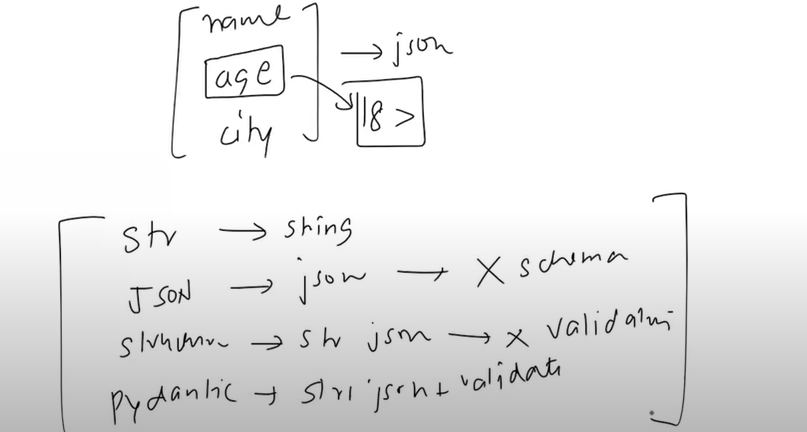 name
age
city
→ json
18 >
str → string
JSON → json → X schema
→ str json → x validatn
Pydantic → str json + validate